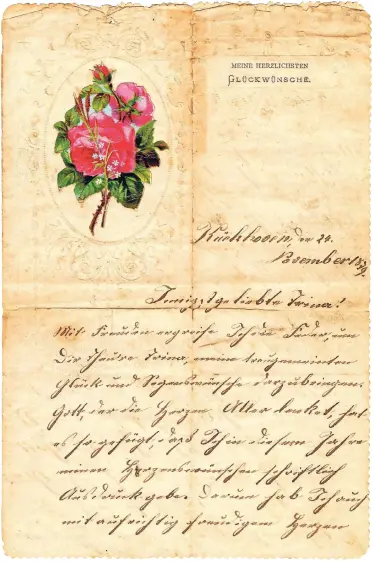 MEINE HERZLICHSTEN
GLÜCKWÜNSCHE.
den 24.
November
Innigstgeliebte Trina!
Mit Freuden ergreife Ich die Feder, um
Dir Theure Trina, meine treugemeinten
Glück und Segenswünsche darzubringen.
Gott, der die Herzen Aller lenket, hat
es so gefügt, daß Ich in diesem Jahre
meinen Herzenswünschen schriftlich
Ausdruck gebe. Darum hab Ich auch
mit aufrichtig freudigem Herzen